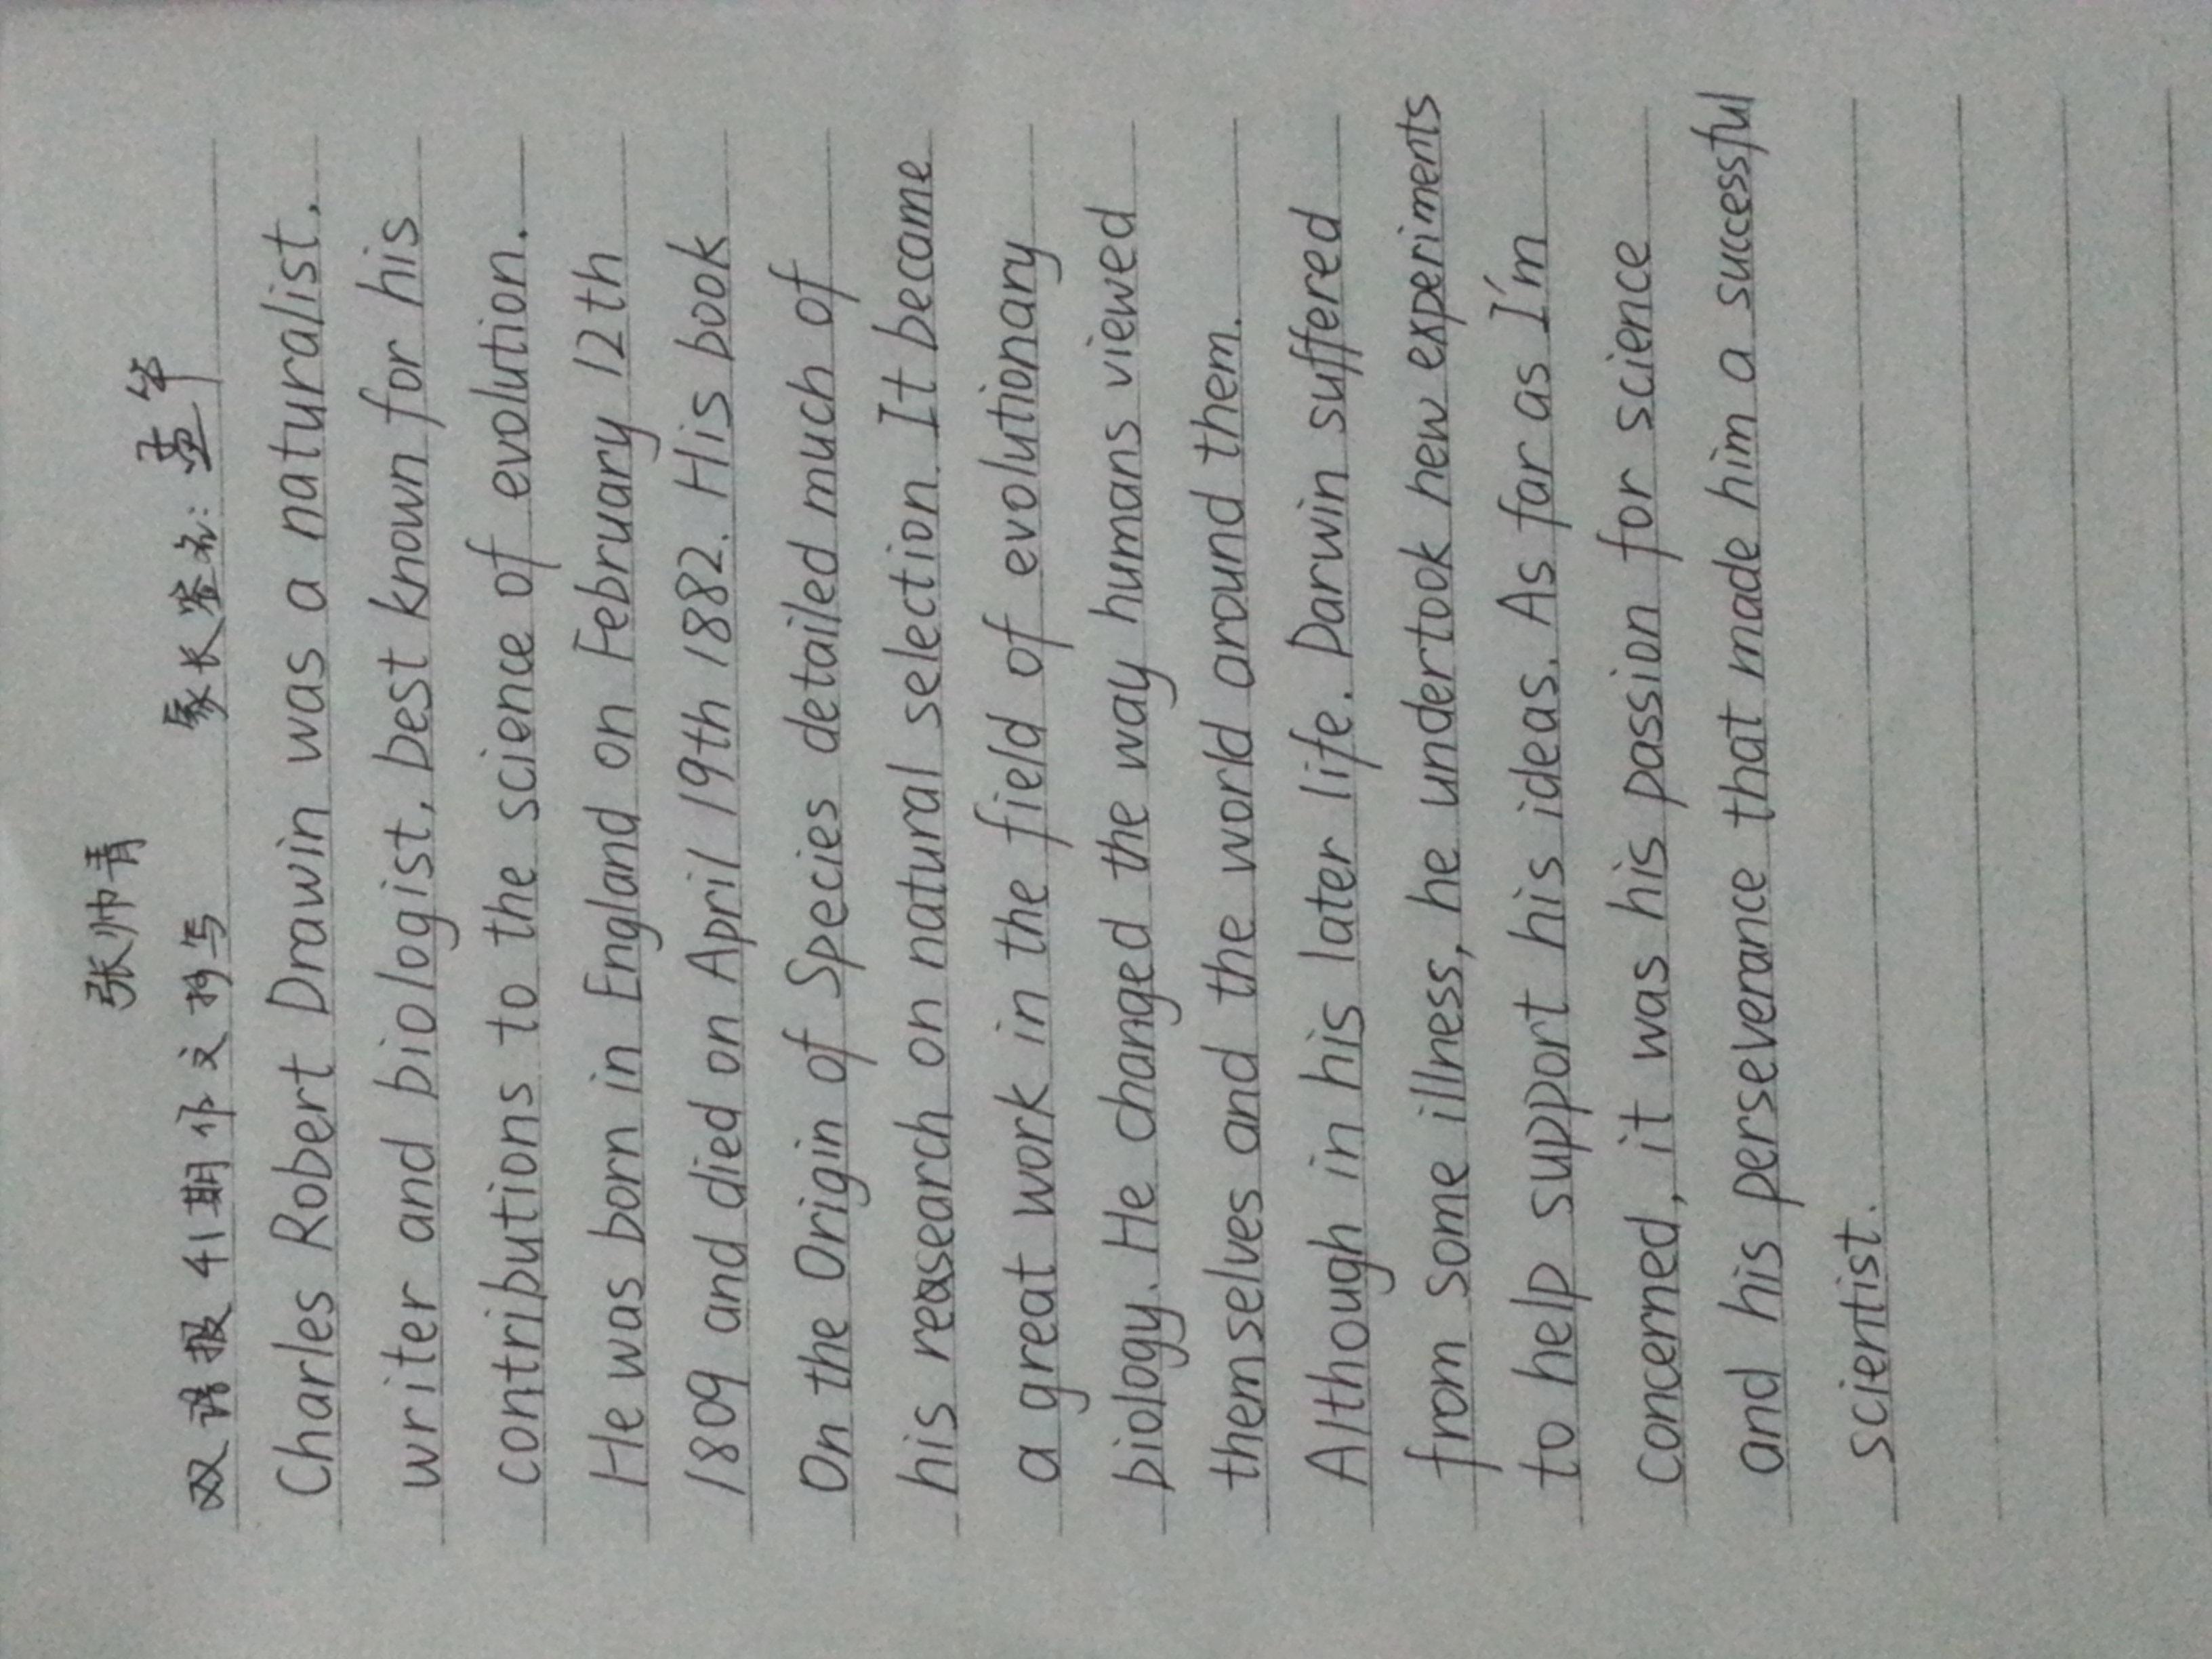 张帅青
双语报41期作文抄写 家长签名: 孟华
Charles Robert Drawin was a naturalist,
writer and biologist, best known for his
contributions to the science of evolution.
He was born in England on February 12th
1809 and died on April 19th 1882. His book
On the Origin of Species detailed much of
his reasearch on natural selection. It became
a great work in the field of evolutionary
biology. He changed the way humans viewed
themselves and the world around them.
Although in his later life. Darwin suffered
from some illness, he undertook new experiments
to help support his ideas. As far as I'm
concerned, it was his passion for science
and his perseverance that made him a successful
scientist.